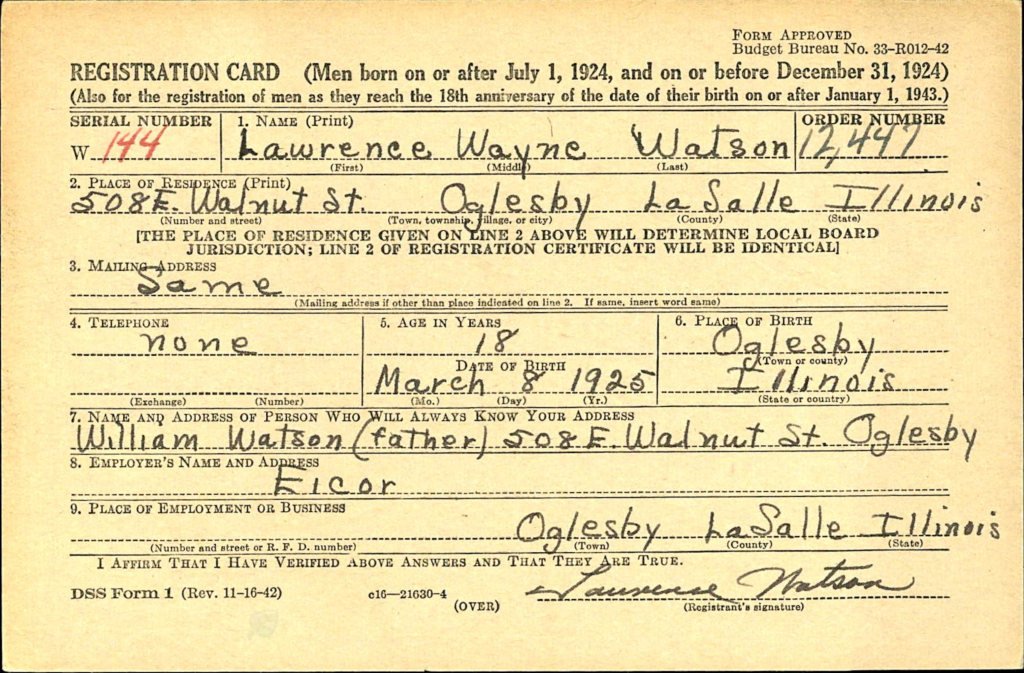 FORM APPROVED
Budget Bureau No. 33-R012-42
REGISTRATION CARD (Men born on or after July 1, 1924, and on or before December 31, 1924)
(Also for the registration of men as they reach the 18th anniversary of the date of their birth on or after January 1, 1943.)
SERIAL NUMBER 1. NAME (Print) ORDER NUMBER
W 144 Lawrence Wayne Watson 12,447
(First) (Middle) (Last)
2. PLACE OF RESIDENCE (Print)
508 E. Walnut St. Oglesby LaSalle Illinois
(Number and street) (Town, township, village, or city) (County) (State)
[THE PLACE OF RESIDENCE GIVEN ON LINE 2 ABOVE WILL DETERMINE LOCAL BOARD
JURISDICTION; LINE 2 OF REGISTRATION CERTIFICATE WILL BE IDENTICAL]
3. MAILING ADDRESS
Same
(Mailing address if other than place indicated on line 2. If same, insert word same)
4. TELEPHONE 5. AGE IN YEARS 6. PLACE OF BIRTH
none 18 Oglesby
DATE OF BIRTH (Town or county)
March 8 1925 Illinois
(Exchange) (Number) (Mo.) (Day) (Yr.) (State or country)
7. NAME AND ADDRESS OF PERSON WHO WILL ALWAYS KNOW YOUR ADDRESS
William Watson (father) 508 E. Walnut St. Oglesby
8. EMPLOYER'S NAME AND ADDRESS
Eicor
9. PLACE OF EMPLOYMENT OR BUSINESS
Oglesby LaSalle Illinois
(Number and street or R. F. D. number) (Town) (County) (State)
I AFFIRM THAT I HAVE VERIFIED ABOVE ANSWERS AND THAT THEY ARE TRUE.
DSS Form 1 (Rev. 11-16-42) c16—21630-4 Lawrence Watson
(OVER) (Registrant's signature)